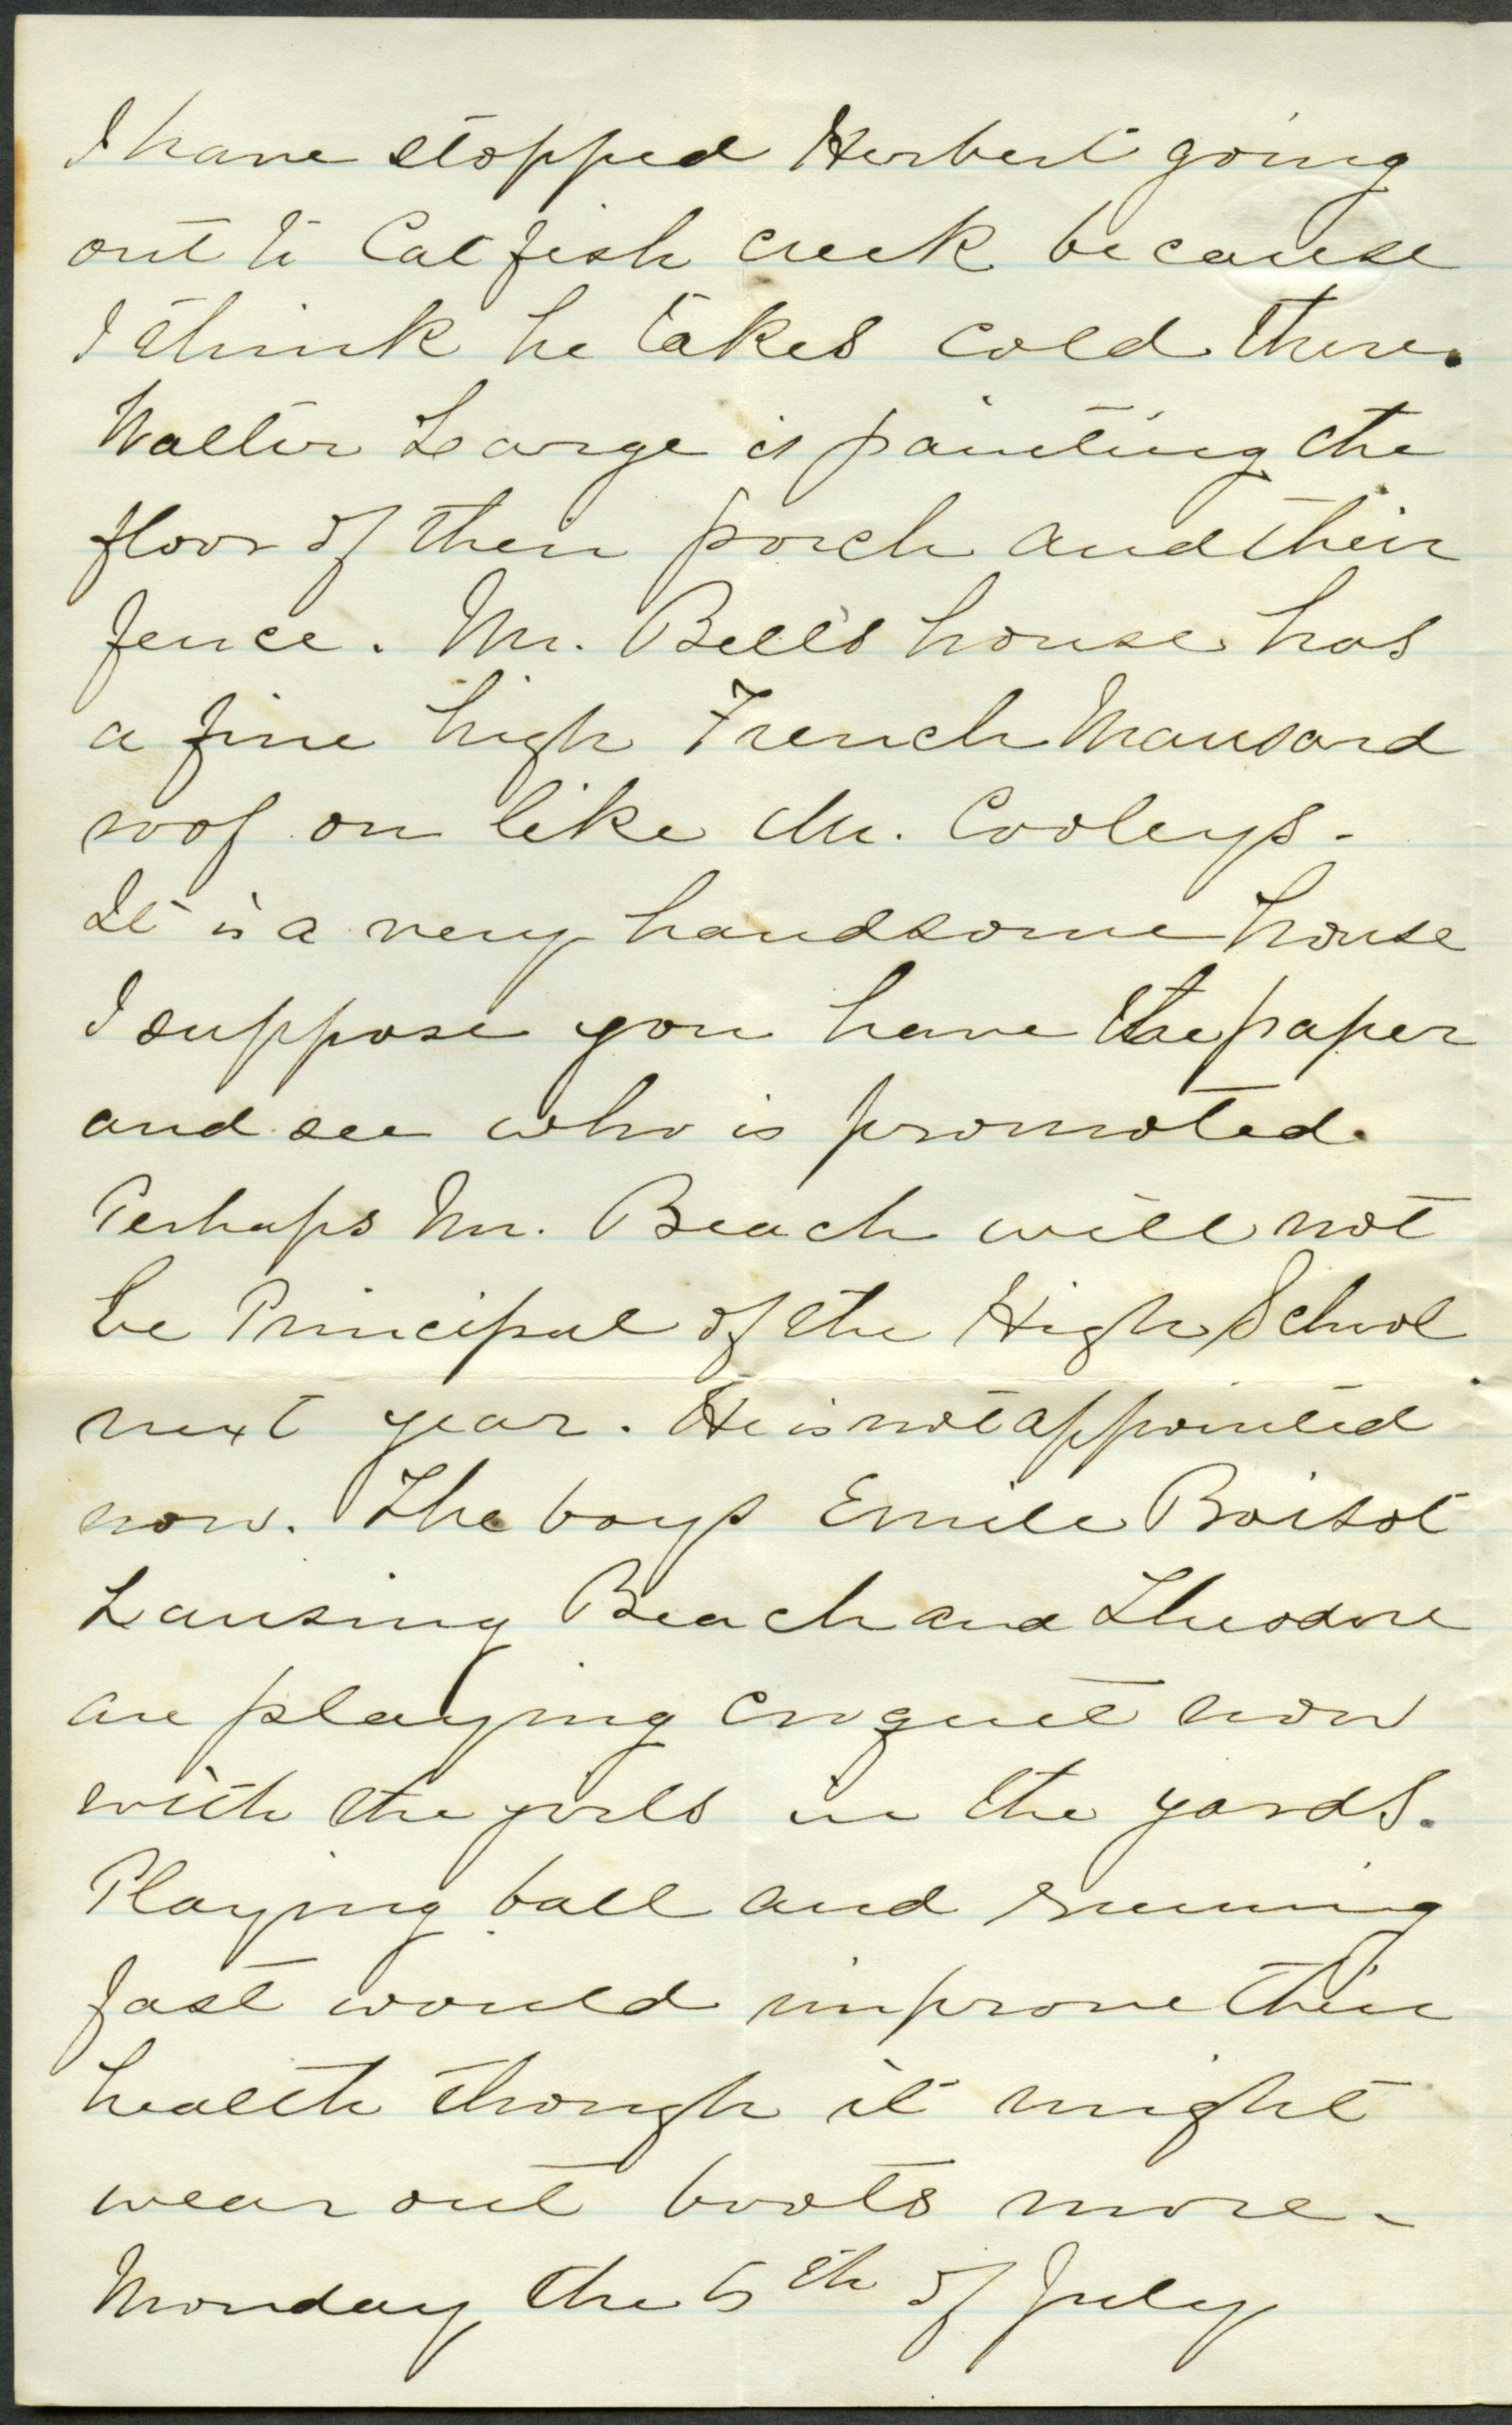 I have stopped Herbert going
out to Cat fish creek because
I think he takes cold there.
Walter Large is painting the
floor of their porch and their
fence. Mr. Bell's house has
a fine high French Mansard
roof on like Mr. Cooleys.
It is a very handsome house
I suppose you have the paper
and see who is promoted.
Perhaps Mr. Beach will not
be Principal of the High School
next year. He is not appointed
now. The boys Emile Boisot
Lansing Beach and Theodore
are playing croquet now
with the girls in the yards.
Playing ball and running
fast would improve their
health though it might
wear out boots more.
Monday the 5th of July